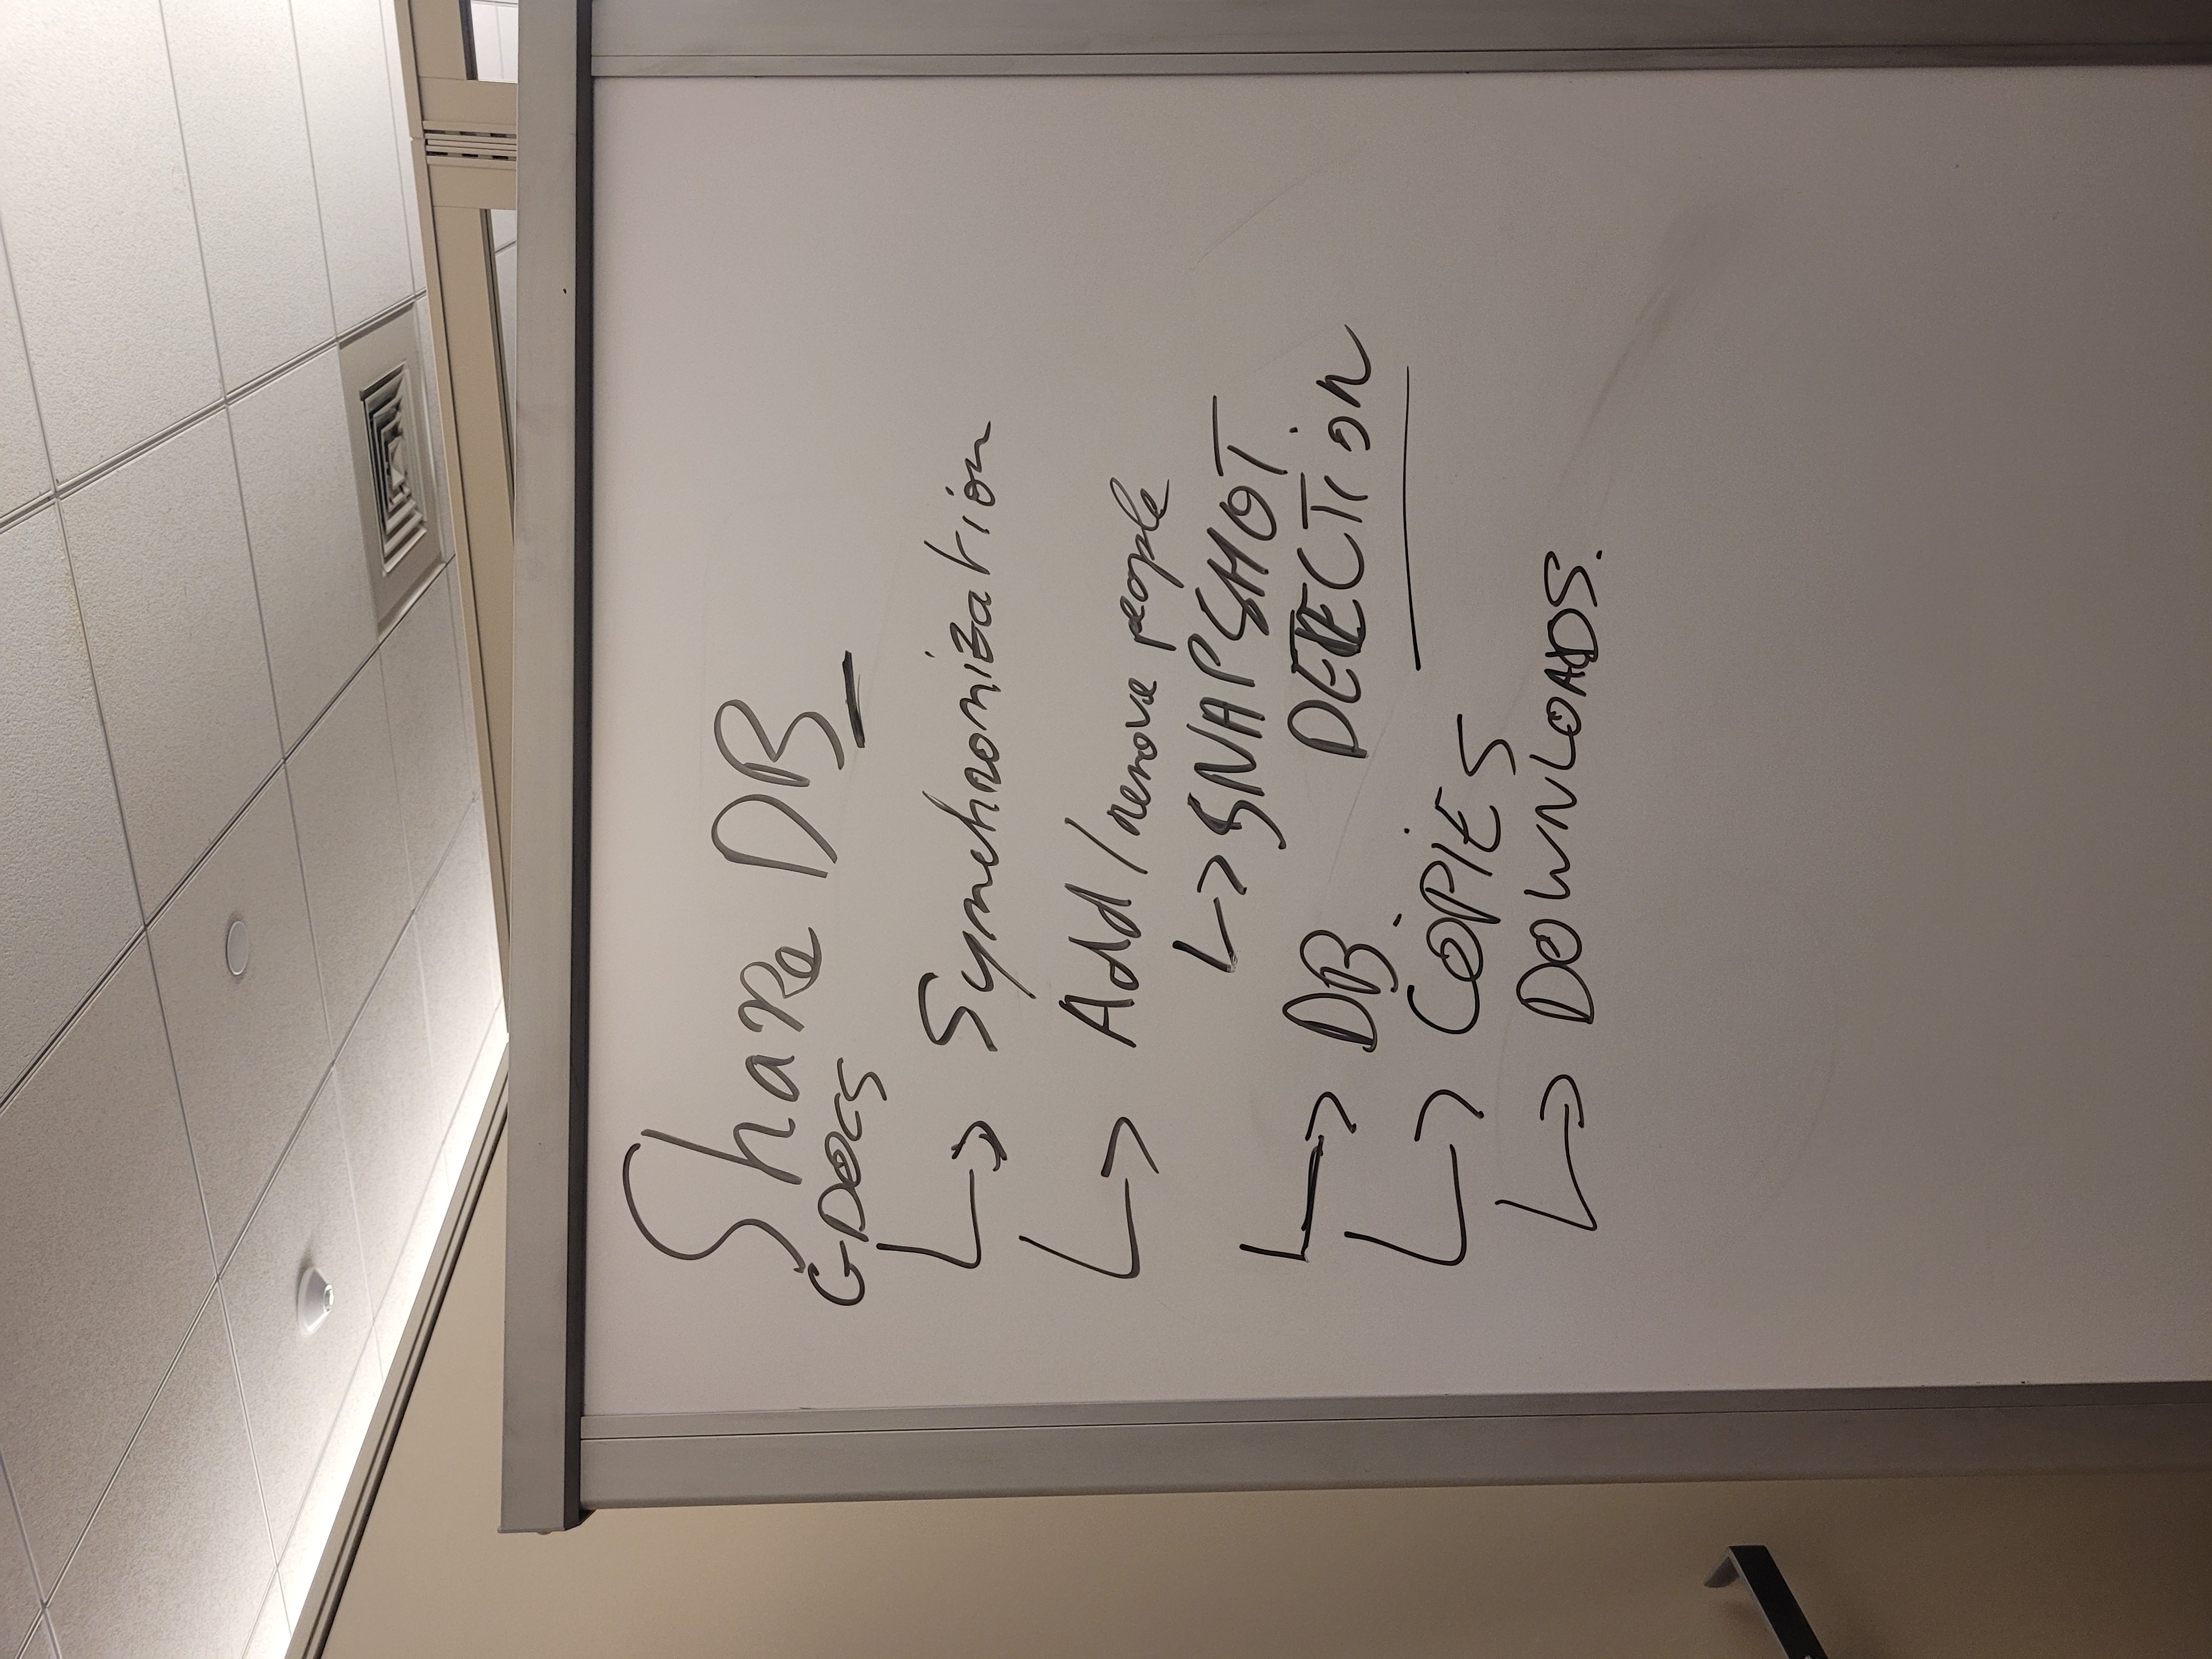 Share DB
GDOCS
↳ Synchronization
↳ Add/remove people
↳ SNAPSHOT
DETECTION
↳ DB
↳ COPIES
↳ DOWNLOADS.